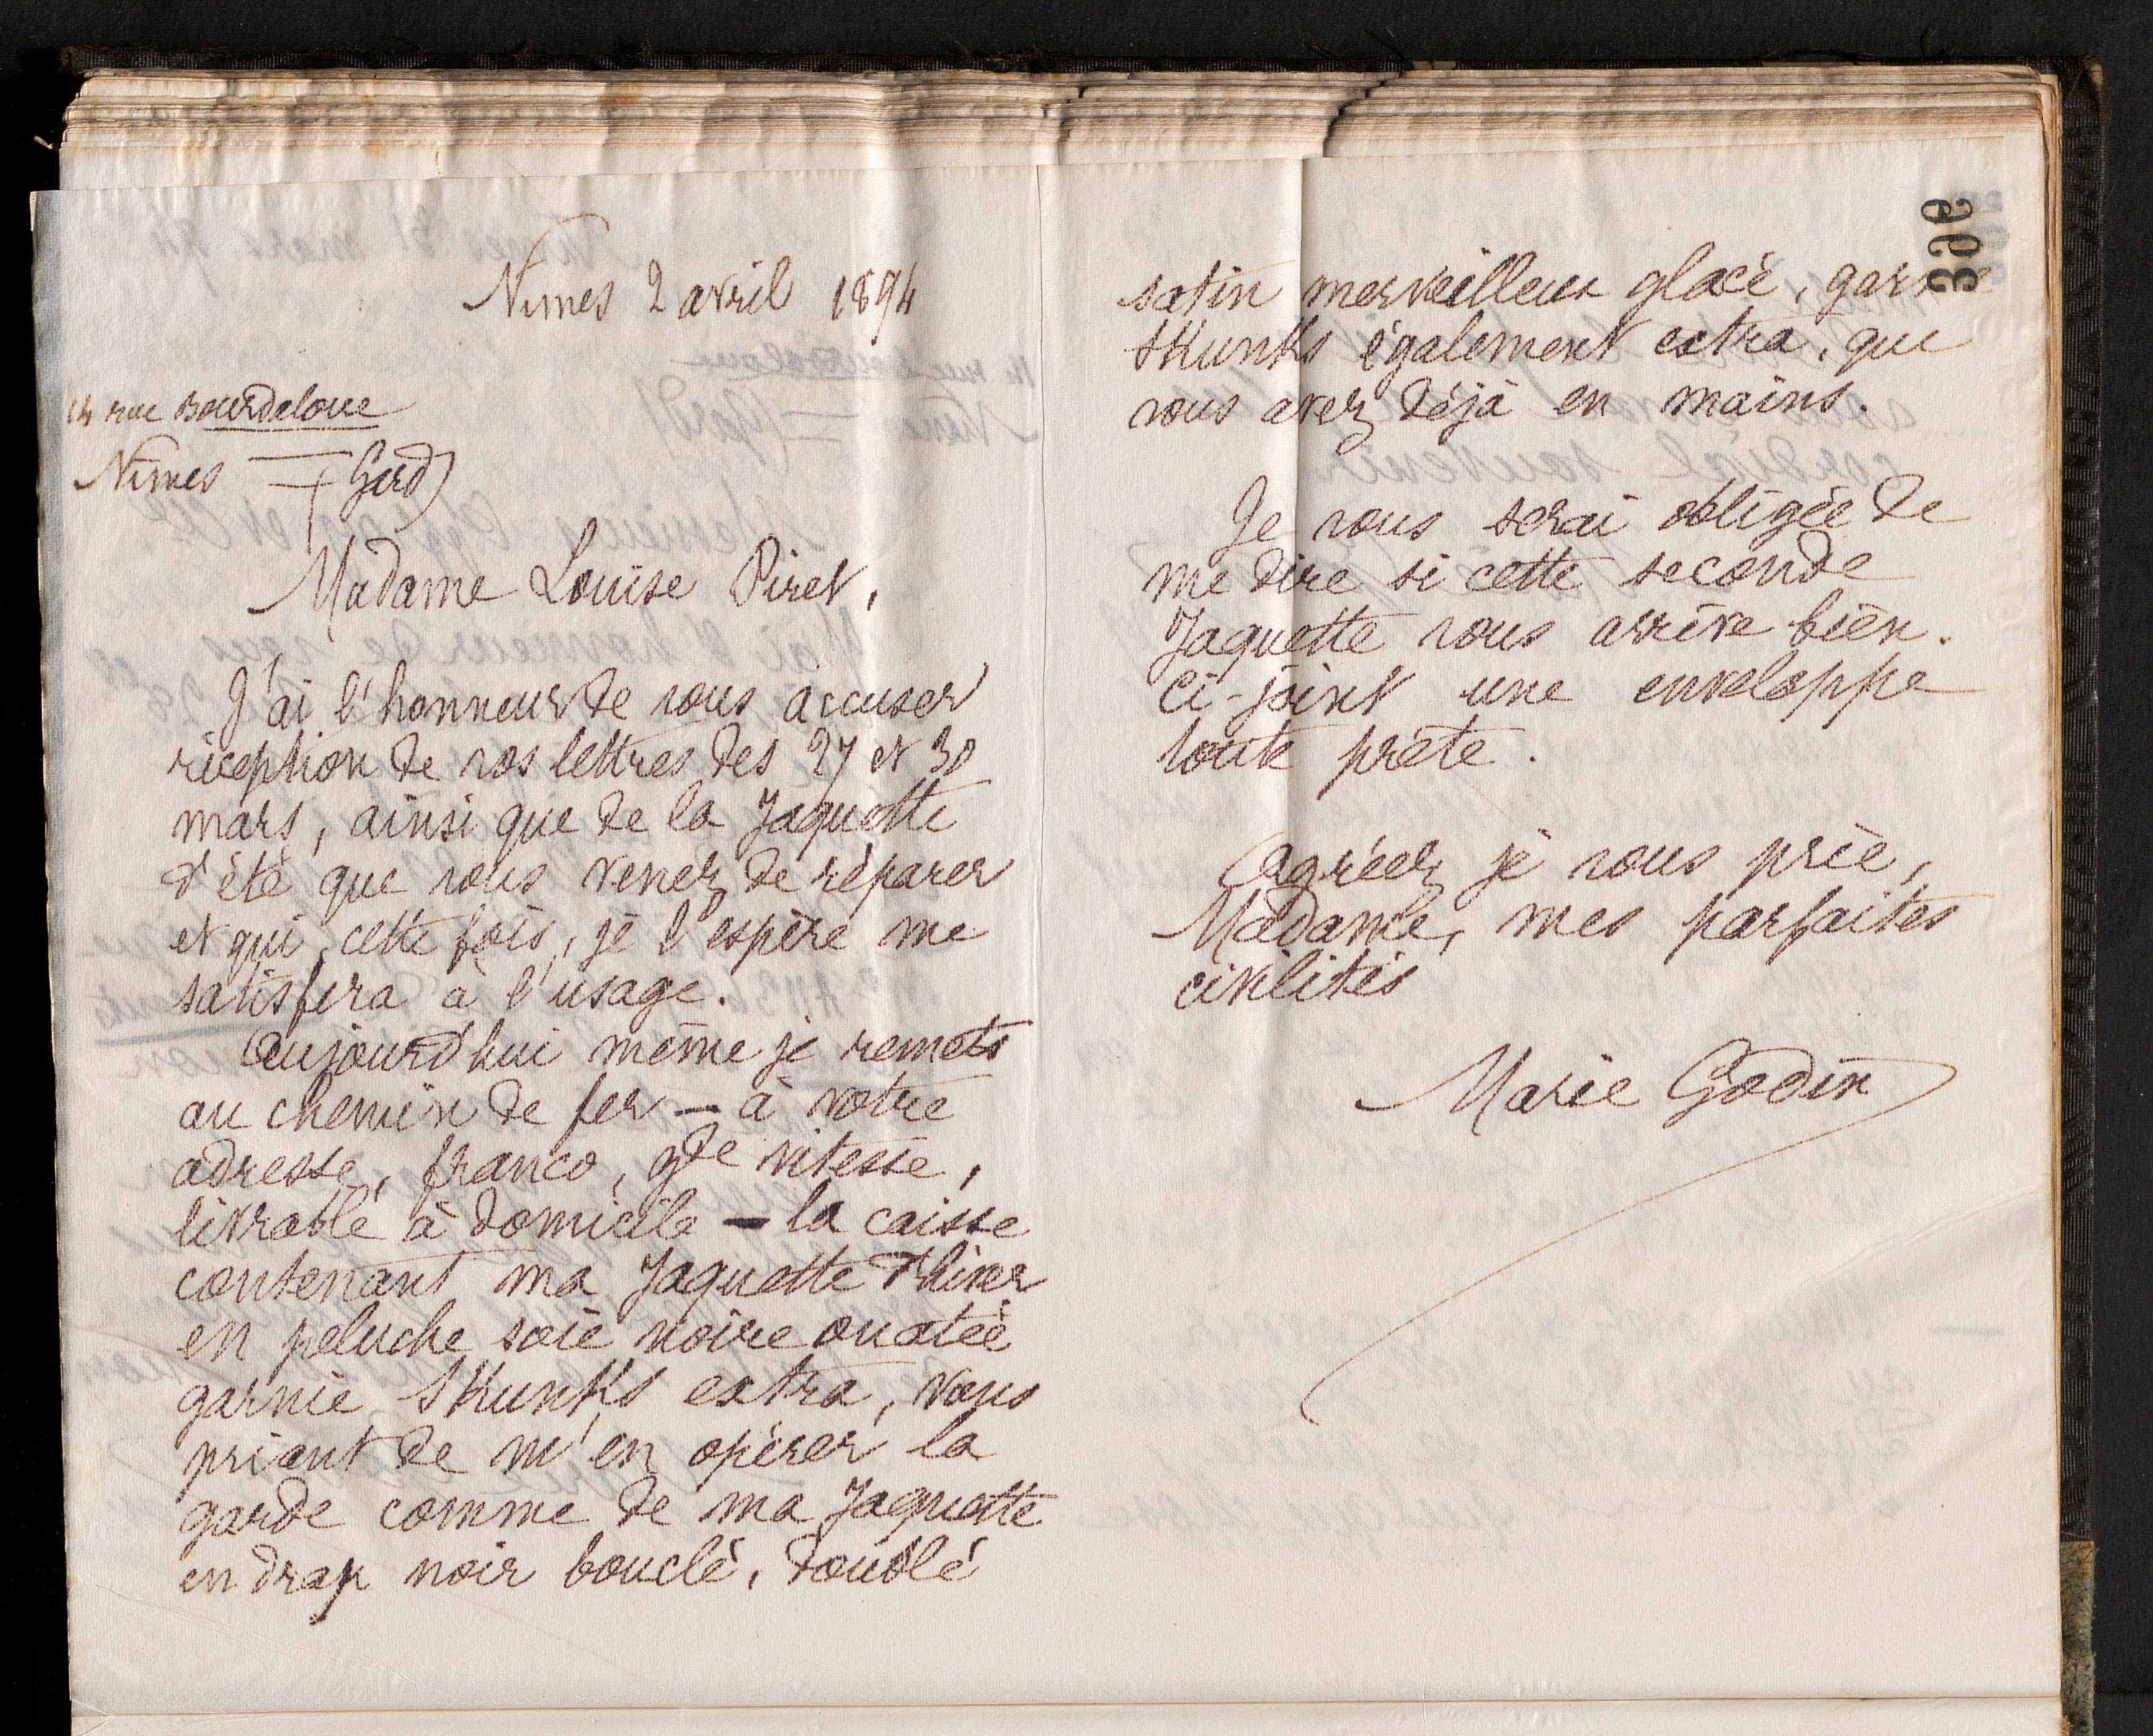 Nimes 2 avril 1894
14 rue Bourdaloue
Nîmes (Gard)
Madame Louise Piret,
J'ai l'honneur de vous accuser
réception de vos lettres des 27 et 30
mars, ainsi que de la Jaquette
d'été que vous venez de réparer
et qui, cette fois, je l'espère me
satisfera à l'usage.
Aujourd'hui même je remets
au chemin de fer — à votre
adresse, franco, gde vitesse,
livrable à domicile — la caisse
contenant ma Jaquette d'hiver
en peluche soie noire ouatée
garnie Skunks extra, vous
priant de m'en opérer la
garde comme de ma Jaquette
en drap noir bouclé, doublé
satin merveilleux glacé,
Skunks également extra, que
vous avez déjà en mains.
Je vous serai obligée de
me dire si cette seconde
Jaquette vous arrive bien.
Ci-joint une enveloppe
toute prête.
Agréez, je vous prie,
Madame, mes parfaites
civilités
Marie Godin
306